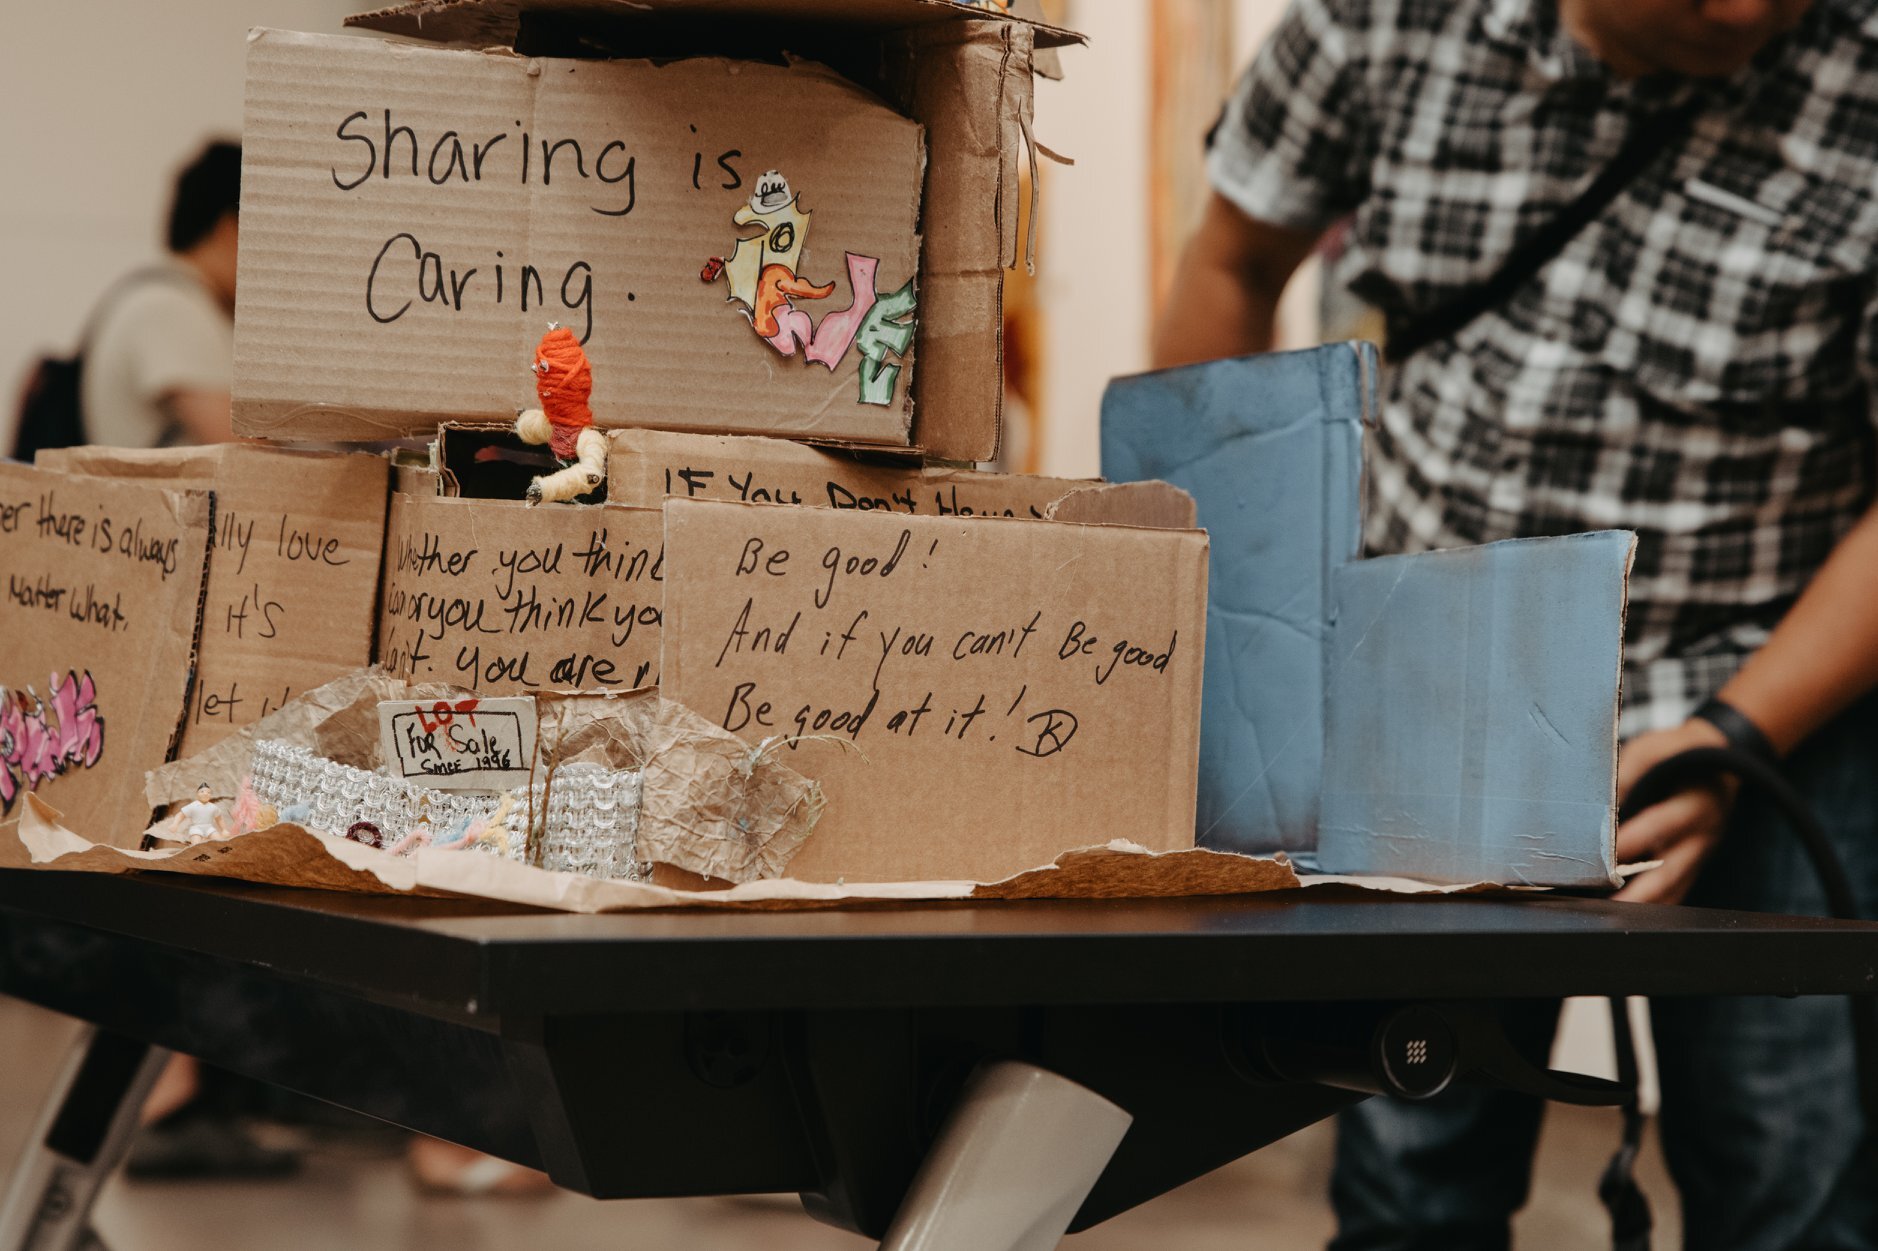 Sharing is
Caring.
IF You Don't Have
er there is always
Matter what.
lly love
it's
let it
Whether you think
can or you think yo
can't. you are
Be good!
And if you can't Be good
Be good at it!
LOT
For Sale
Since 1996